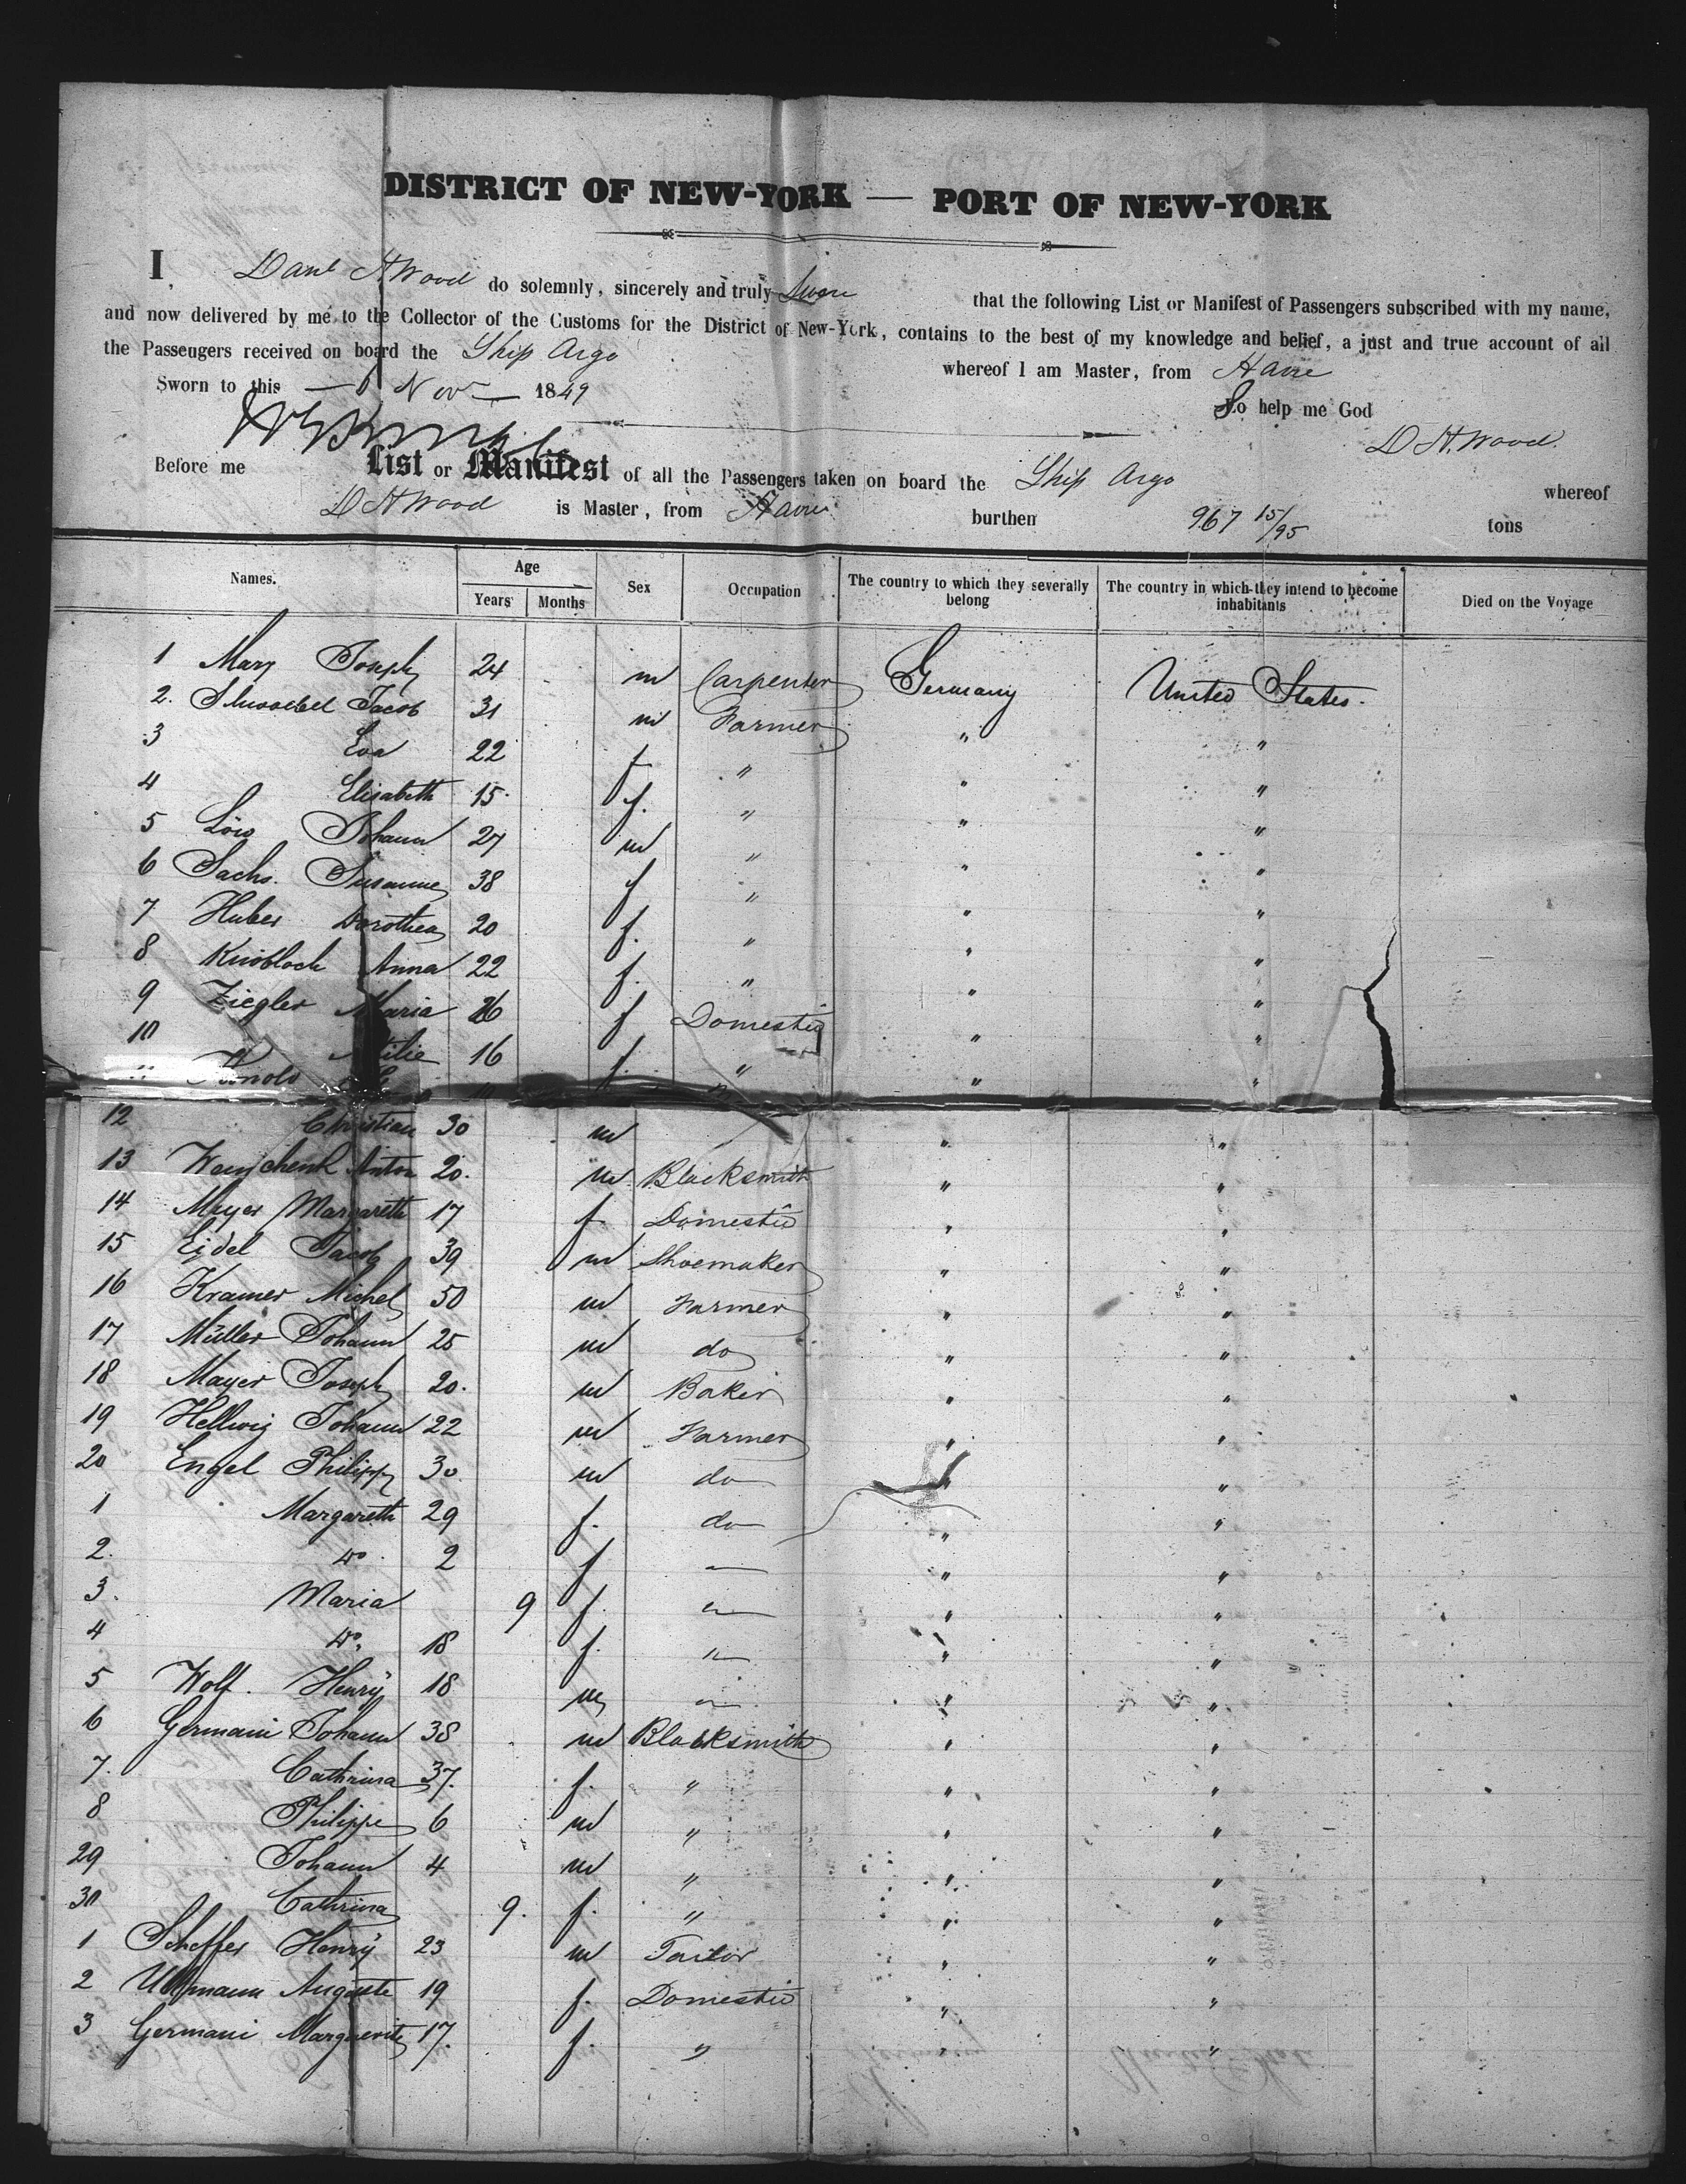 DISTRICT OF NEW-YORK — PORT OF NEW-YORK
I, Danl H Wood do solemnly, sincerely and truly Swear that the following List or Manifest of Passengers subscribed with my name,
and now delivered by me to the Collector of the Customs for the District of New-York, contains to the best of my knowledge and belief, a just and true account of all
the Passengers received on board the Ship Argo whereof I am Master, from Havre
Sworn to this Nov 1849
So help me God
D H Wood
Before me
List or Manifest of all the Passengers taken on board the Ship Argo whereof
D H Wood is Master, from Havre burthen 967 15/95 tons
Names. Age Years Months Sex Occupation The country to which they severally belong The country in which they intend to become inhabitants Died on the Voyage
1 Marx Joseph 24 m Carpenter Germany United States.
2. Jacob 31 m Farmer " "
3 Eva 22 f " " "
4 Elisabeth 15 f. " " "
5 Löw Johann 27 m " " "
6 Sachs. Susanne 38 f " " "
7 Huber Dorothea 20 f. " " "
8 Knobloch Anna 22 f. " " "
9 Ziegler Maria 26 f Domestic " "
10 16 f. " " "
12 Christian 30 m " "
13 Anton 20. m Blacksmith " "
14 Mayer Margareth 17 f Domestic " "
15 Eidel Jacob 39 m Shoemaker " "
16 Kramer Michel 50 m Farmer " "
17 Müller Johann 25 m do " "
18 Mayer Joseph 20. m Baker " "
19 Hellwig Johann 22 m Farmer " "
20 Engel Philipp 30 m do " "
1 Margareth 29 f. do " "
2. do 2 f " "
3. Maria 9 f. " "
4 do. 18 f. " " "
5 Wolf. Henry 18 m " " "
6 Germani Johann 38 m Blacksmith " "
7. Cathrina 37. f. " " "
8 Philippe 6 m " " "
29 Johann 4 m " " "
30 Cathrina 9. f. " " "
1 Scheffer Henry 23 m Tailor " "
2 Ullmann Auguste 19 f. Domestic " "
3 Germani Marguerite 17. f. " " "